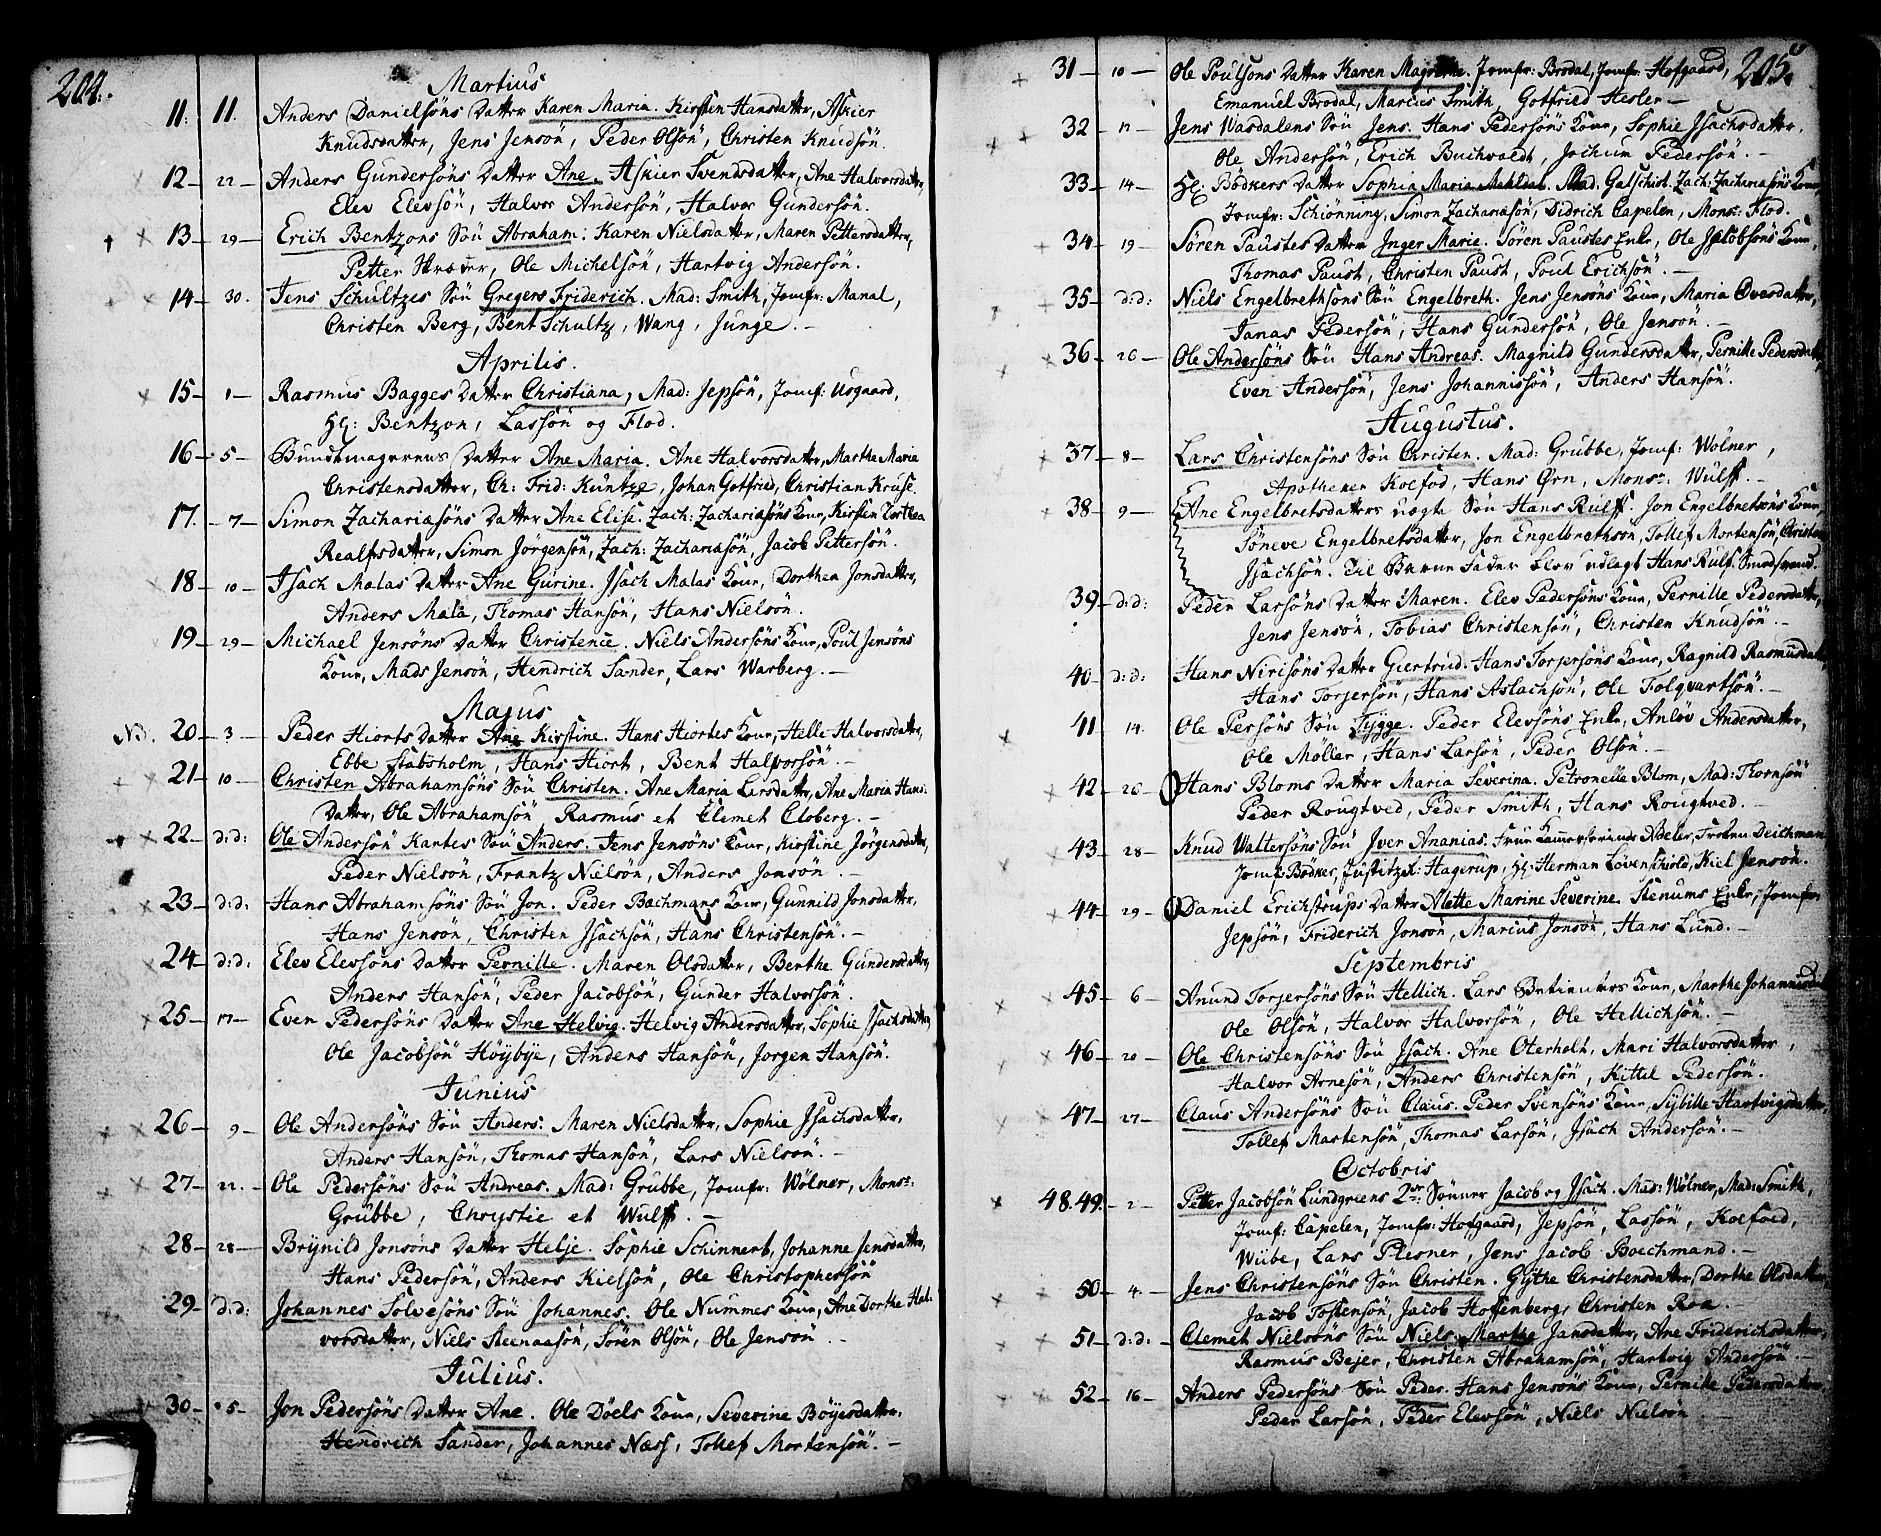 204.
Martius
11. 11. Anders Danielsöns Datter Karen Maria. Kirsten Hansdatter, Askier
Knudsdatter, Jens Jensön, Peder Olsön, Christen Knudsön.
12 - 22 - Anders Gundersöns Datter Ane. Askier Svendsdatter, Ane Halvorsdatter,
Elev Elevsön, Halvor Andersön, Halvor Gundersön.
13 - 29 - Erich Bentzons Sön Abraham. Karen Nielsdatter, Maren Pettersdatter,
Petter, Ole Michelsön, Hartvig Andersön.
14 - 30. Jens Schultzes Sön Gregers Friderich. Mad: Smith, Jomfr: Manal,
Christen Berg, Bent Schultz, Wang, Junge. -
Aprilis.
15 - 1 - Rasmus Bagges Datter Christiana, Mad: Jepsön, Jomf: Usgaard,
Hl: Bentzon, Lassön og Flod.
16 - 5 - Buntmagerens Datter Ane Maria. Ane Halvorsdatter, Marthe Maria
Christensdatter, Ch: Frid: Küntze, Johan Gotfried, Christian Kruse.
17. - 7 - Simon Zachariæsöns Datter Ane Elise. Zach: Zachariæsöns Kone, Kirsten Dorthea
Realfsdatter, Simon Jörgensön, Zach: Zachariæsön, Jacob Pettersön.
18 - 10 - Isach Malas Datter Ane Gurine. Isach Malas Kone, Dorthea Jonsdatter,
Anders Mala, Thomas Hansön, Hans Nielsön.
19 - 29 - Michael Jensöns Datter Christence. Niels Andersöns Kone, Poul Jensöns
Kone, Mads Jensön, Hendrich Sander, Lars Warberg. -
Majus
NB. 20 - 3 - Peder Hiorts Datter Ane Kirstine. Hans Hiortes Kone, Helle Halvorsdatter,
Ebbe Stabsholm, Hans Hiort, Bent Halvorsön. -
21 - 10 - Christen Abrahamsöns Sön Christen. Ane Maria Larsdatter, Ane Maria Hans-
Datter, Ole Abrahamsön, Rasmus et Clemet Cloberg. -
22 - d:d: Ole Andersön Kastes Sön Anders. Jens Jensöns Kone, Kirstine Jörgensdatter,
Peder Nielsön, Frantz Nielsön, Anders Jonsön. -
23 - d:d: Hans Abrahamsöns Sön Jon. Peder Bæchmans Kone, Gunnild Jonsdatter,
Hans Jensön, Christen Isachsön, Hans Christensön. -
24 - d:d: Elev Elevsöns Datter Pernille. Maren Olsdatter, Berthe Gundersdatter,
Anders Hansön, Peder Jacobsön, Gunder Halvorsön.
25 - 17 - Even Pedersöns Datter Ane Helvig. Helvig Andersdatter, Sophie Isachsdatter,
Ole Jacobsön Höybye, Anders Hansön, Jörgen Hansön.
Junius
26 - 9 - Ole Andersöns Sön Anders. Maren Nielsdatter, Sophie Isachsdatter,
Anders Hansön, Thomas Hansön, Lars Nielsön. -
27 - 22. - Ole Pedersöns Sön Andreas. Mad: Grubbe, Jomfr: Wölner, Monsr:
Grubbe, Chrystie et Wulff. -
28 - 28 - Brÿnild Jonsöns Datter Helje. Sophie Schinnert, Johanne Jensdatter,
Hans Pedersön, Anders Kielsön, Ole Christophersön
29 - d:d: Johannes Solvesöns Sön Johannes. Ole Nummes Kone, Ane Dorthe Hal-
vorsdatter, Niels Steenaasön, Sören Olsön, Ole Jensön. -
Julius.
30 - 5 - Jon Pedersöns Datter Ane. Ole Döels Kone, Severine Böyesdatter,
Hendrich Sander, Johannes Næss, Tollef Mortensön. -
205.
31 - 10 - Ole Poulsons Datter Karen. Jomfr: Brodal, Jomfr: Hofgaard,
Emanuel Brodal, Marcus Smith, Gotfried Hesler -
32 - 12 - Jens Wasdalens Sön Jens. Hans Pedersöns Kone, Sophie Isachsdatter,
Ole Andersön, Erich Buchvaldt, Jochum Pedersön. -
33 - 14 - Hl: Bödkers Datter Sophia Maria Mehldal. Mad: Galschiöt, Zach: Zachariæsöns Kone,
Jomfr: Schiönning, Simon Zachariæsön, Didrich Capelen, Monsr: Flod.
34 - 19 - Sören Paustes Datter Inger Marie. Sören Paustes Enke, Ole Jacobsöns Kone,
Thomas Paust, Christen Paust, Poul Erichsön. -
35 - d:d: Niels Engelbrethsons Sön Engelbreth. Jens Jensöns Kone, Maria Ovesdatter,
Janas Pedersön, Hans Gundersön, Ole Jensön. -
36 - 26 - Ole Andersöns Sön Hans Andreas. Magnild Gundersdatter, Pernille Pedersdatter,
Even Andersön, Jens Johannissön, Anders Hansön.
Augustus.
37 - 8 - Lars Christensöns Sön Christen. Mad: Grubbe, Jomf: Wölner,
Apotheker Koefod, Hans Örn, Monsr: Wulff. -
38 - 9 - Ane Engelbretsdatters uægte Sön Hans Rulff. Jon Engelbretsöns Kone,
Söneve Engelbretsdatter, Jon Engelbrethson, Tollef Mortensön, Christen
Isachsön. Til Barne Fader blev udlagt Hans Rulf Smedsvend.
39 - d:d: Peder Larsöns Datter Maren. Elev Pedersöns Kone, Pernille Pedersdatter,
Jens Jensön, Tobias Christensön, Christen Knudsön. -
40 - d:d: Hans Nirisöns Datter Giertrud. Hans Torjersöns Kone, Ragnild Rasmusdatter,
Hans Torjersön, Hans Aslachsön, Ole Folqvartsön. -
41 14. Ole Persöns Sön Tÿgge. Peder Elevsöns Enke, Anlöv Andersdatter,
Ole Moller, Hans Larsön, Peder Olsön. -
42 - 26 - Hans Bloms Datter Maria Severina. Petronelle Blom, Mad: Thornsön
Peder Rougtved, Peder Smith, Hans Rougtved. -
43 - 28 - Knud Waltersöns Sön Iver Ananias. Frue Kammerherinde Adeler, Fröken Deichman
Jomf: Bödker, Justitzr: Hagerup, Hl: Herman Lövenskiold, Kiel Jensön.
44 - 29 - Daniel Erichstrups Datter Alette Marine Severine. Stenums Enke, Jomfr:
Jepsön, Friderich Jonsön, Marius Jonsön, Hans Lund. -
Septembris
45 - 6 - Anund Torjersöns Sön Hellich. Lars Betienters Kone, Marthe Johannisdatter
Ole Olsön, Halvor Halvorsön, Ole Hellichsön. -
46 - 20 - Ole Christensöns Sön Isach. Ane Oterholt, Mari Halvorsdatter,
Halvor Arnesön, Anders Christensön, Kittil Pedersön.
47 - 27 - Claus Andersöns Sön Claus. Peder Svensöns Kone, Sybille Hartvigsdatter,
Tollef Mortensön, Thomas Larsön, Isach Anderson. -
Octobris
48.49. - 2 - Petter Jacobsön Lundgreens 2de Sönner Jacob og Isach. Mad: Wölner, Mad: Smith,
Jomf: Capelen, Jomfr: Hofgaard, Jepsön, Lassön, Koefoed,
Wiibe, Lars Plesner, Jens Jacob Boechmand. -
50 - 4 - Jens Christensöns Sön Christen. Gÿthe Christensdatter, Dorthe Olsdatter,
Jacob Tostensön, Jacob Hoffenberg, Christen Roa.
51 - d:d: - Clemet Nielsöns Sön Niels. Marthe Jansdatter, Ane Friderichsdatter,
Rasmus Bejer, Christen Abrahamsön, Hartvig Andersön. -
52 - 16 - Anders Pedersöns Sön Peder. Hans Jensöns Kone, Pernille Pedersdatter,
Peder Larsön, Peder Elevsön, Niels Nielsön